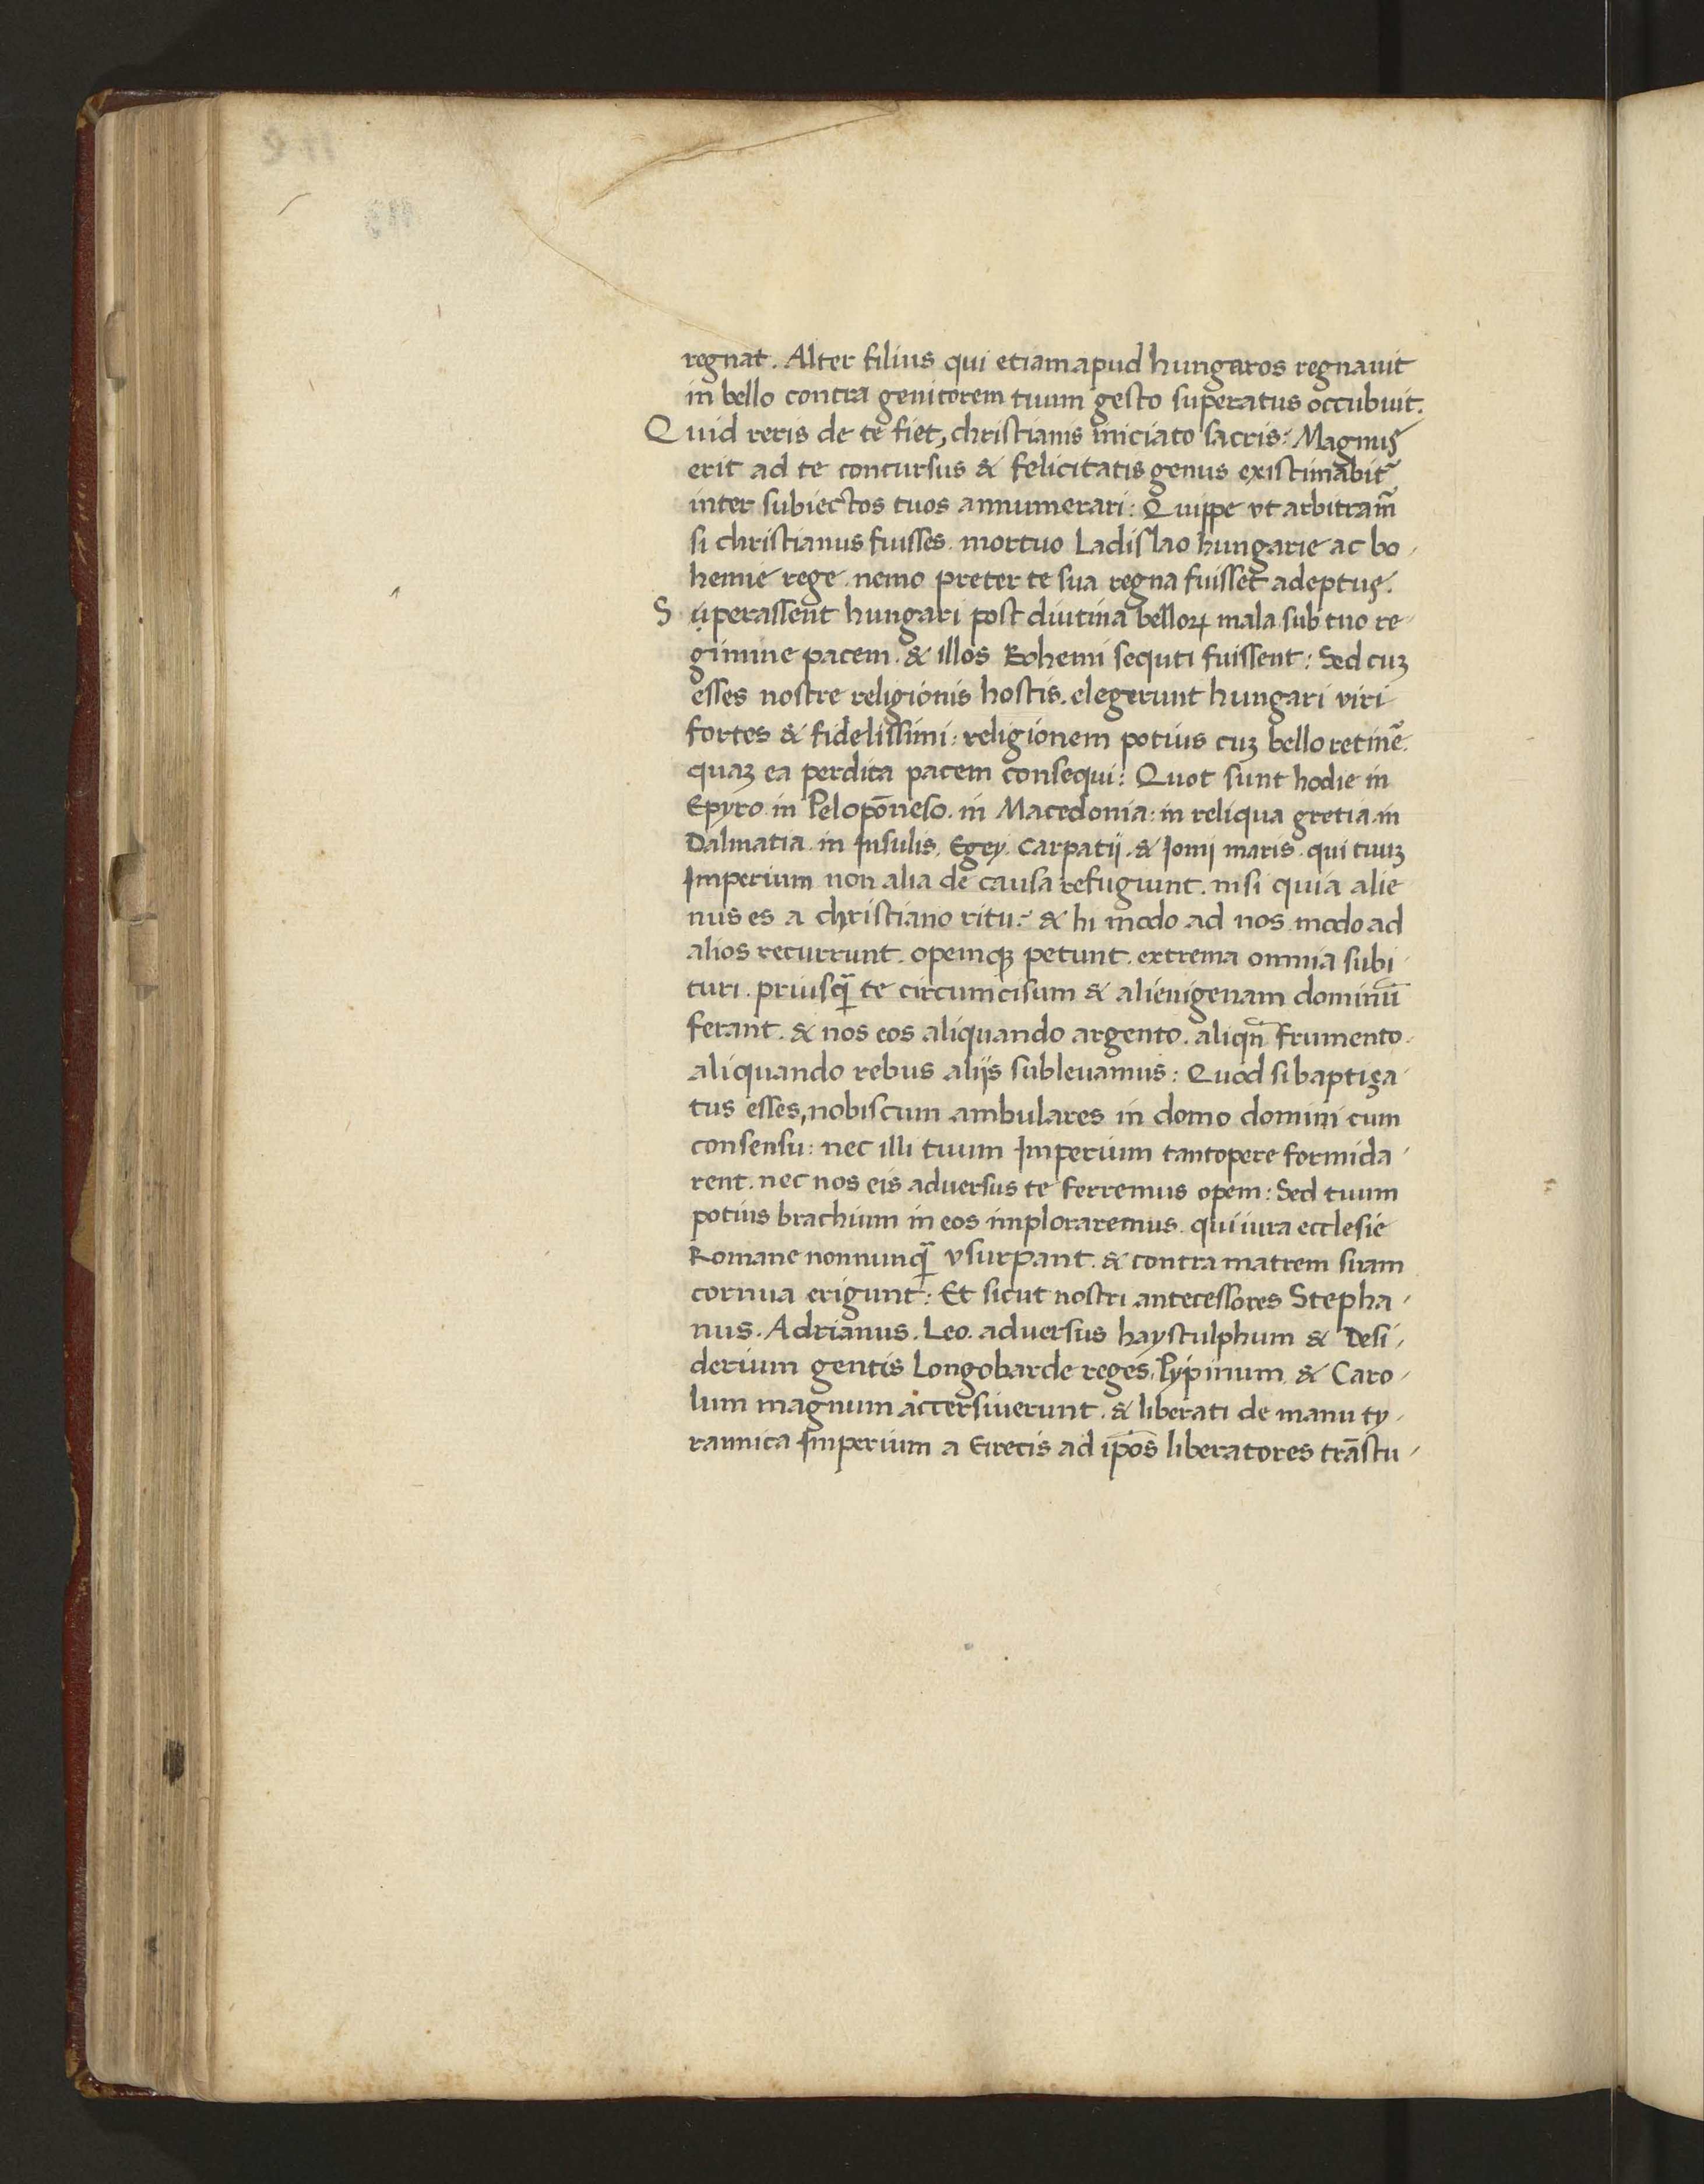 regnat. Alter filius qui etiam apud hungaros regnauit
in bello contra genitorem tuum gesto superatus occubuit.
Quid reris de te fiet, christianis iniciato sacris: Magnus
erit ad te concursus & felicitatis genus existimabit᷑
inter subiectos tuos annumerari: Quippe vt arbitram̃
si christianus fuisses. mortuo Ladislao hungarie ac bo-
hemie rege. nemo preter te sua regna fuisset adeptus.
Superassent hungari post diutina belloꝝ mala sub tuo re-
gimine pacem. & illos Bohemi sequti fuissent: Sed cuꝫ
esses nostre religionis hostis. elegerunt hungari viri
fortes & fidelissimi: religionem potius cuꝫ bello retinẽ.
quaꝫ ea perdita pacem consequi: Quot sunt hodie in
Epyro. in Pelopõneso. in Macedonia: in reliqua gretia. in
Dalmatia. in Insulis. Egey. Carpatij. & Ionij maris. qui tuuꝫ
Imperium non alia de causa refugiunt. nisi quia alie
nus es a christiano ritu: & hi modo ad nos modo ad
alios recurrunt. opemqꝫ petunt. extrema omnia subi-
turi. priusq̃ te circumcisum & alienigenam dominũ
ferant. & nos eos aliquando argento. aliqñ frumento.
aliquando rebus aliis subleuamus: Quod si baptiza-
tus esses, nobiscum ambulares in domo domini cum
consensu: nec illi tuum Imperium tantopere formida-
rent. nec nos eis aduersus te ferremus opem: Sed tuum
potius brachium in eos imploraremus. qui iura ecclesie
Romane nonnunq̃ vsurpant. & contra matrem suam
cornua erigunt: Et sicut nostri antecessores Stepha-
nus. Adrianus. Leo. aduersus haystulphum & Desi-
derium gentis Longobarde reges. Pypinum & Caro-
lum magnum accersiuerunt. & liberati de manu ty-
rannica Imperium a Grecis ad ip̃os liberatores trãstu-